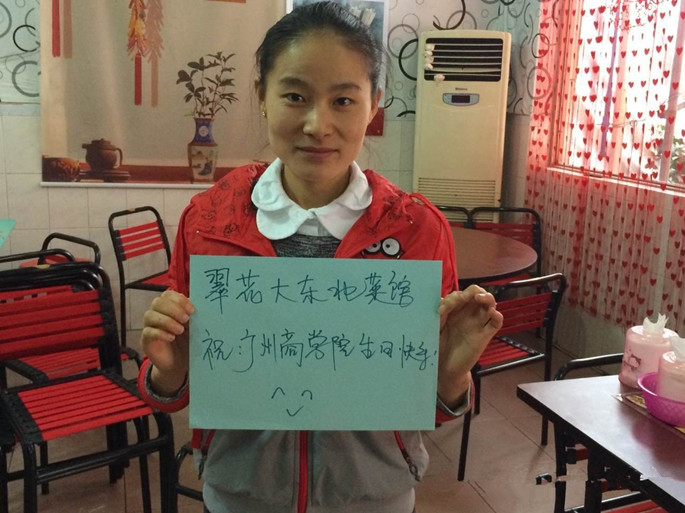 翠花大东北菜馆
祝广州商学院生日快乐!